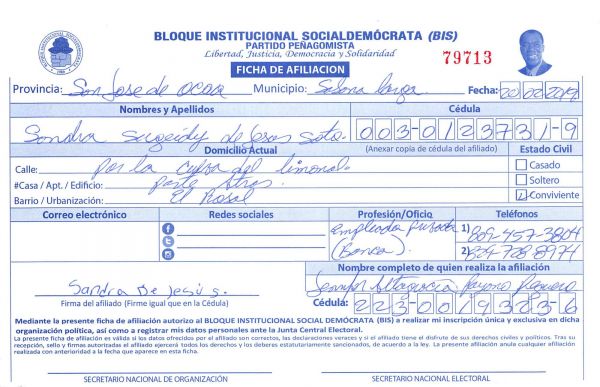 BLOQUE INSTITUCIONAL SOCIALDEMÓCRATA (BIS)
PARTIDO PEÑAGOMISTA
Libertad, Justicia, Democracia y Solidaridad
79713
FICHA DE AFILIACION
Provincia: San Jose de ocoa Municipio: Sabana larga Fecha: 20/02/2019
Nombres y Apellidos Cédula
Sandra sugeidy de Jesus Soto. 003-0123731-9
Domicilio Actual (Anexar copia de cédula del afiliado) Estado Civil
Calle: Por la Curva del limonal. Casado
#Casa / Apt. / Edificio: parte atras. Soltero
Barrio / Urbanización: El Rosal Conviviente
Correo electrónico Redes sociales Profesión/Oficio Teléfonos
Empleada privada 1) 809-457-3804
(Banca). 2) 829-728-8974
Nombre completo de quien realiza la afiliación
Jennifer Altagracia
Sandra De Jesús.
Firma del afiliado (Firme igual que en la Cédula) Cédula: 223-0019323-6
Mediante la presente ficha de afiliación autorizo al BLOQUE INSTITUCIONAL SOCIAL DEMÓCRATA (BIS) a realizar mi inscripción única y exclusiva en dicha
organización política, así como a registrar mis datos personales ante la Junta Central Electoral.
La presente ficha de afiliación es válida si los datos ofrecidos por el afiliado son correctos, las declaraciones veraces y si el afiliado tiene el disfrute de sus derechos civiles y políticos. Tras su
recepción, sello y firmas autorizadas el afiliado ejercerá todos los derechos y los deberes estatutariamente sancionados, de acuerdo a la ley. La presente afiliación anula cualquier afiliación
realizada con anterioridad a la fecha que aparece en esta ficha.
SECRETARIO NACIONAL DE ORGANIZACIÓN SECRETARIO NACIONAL ELECTORAL